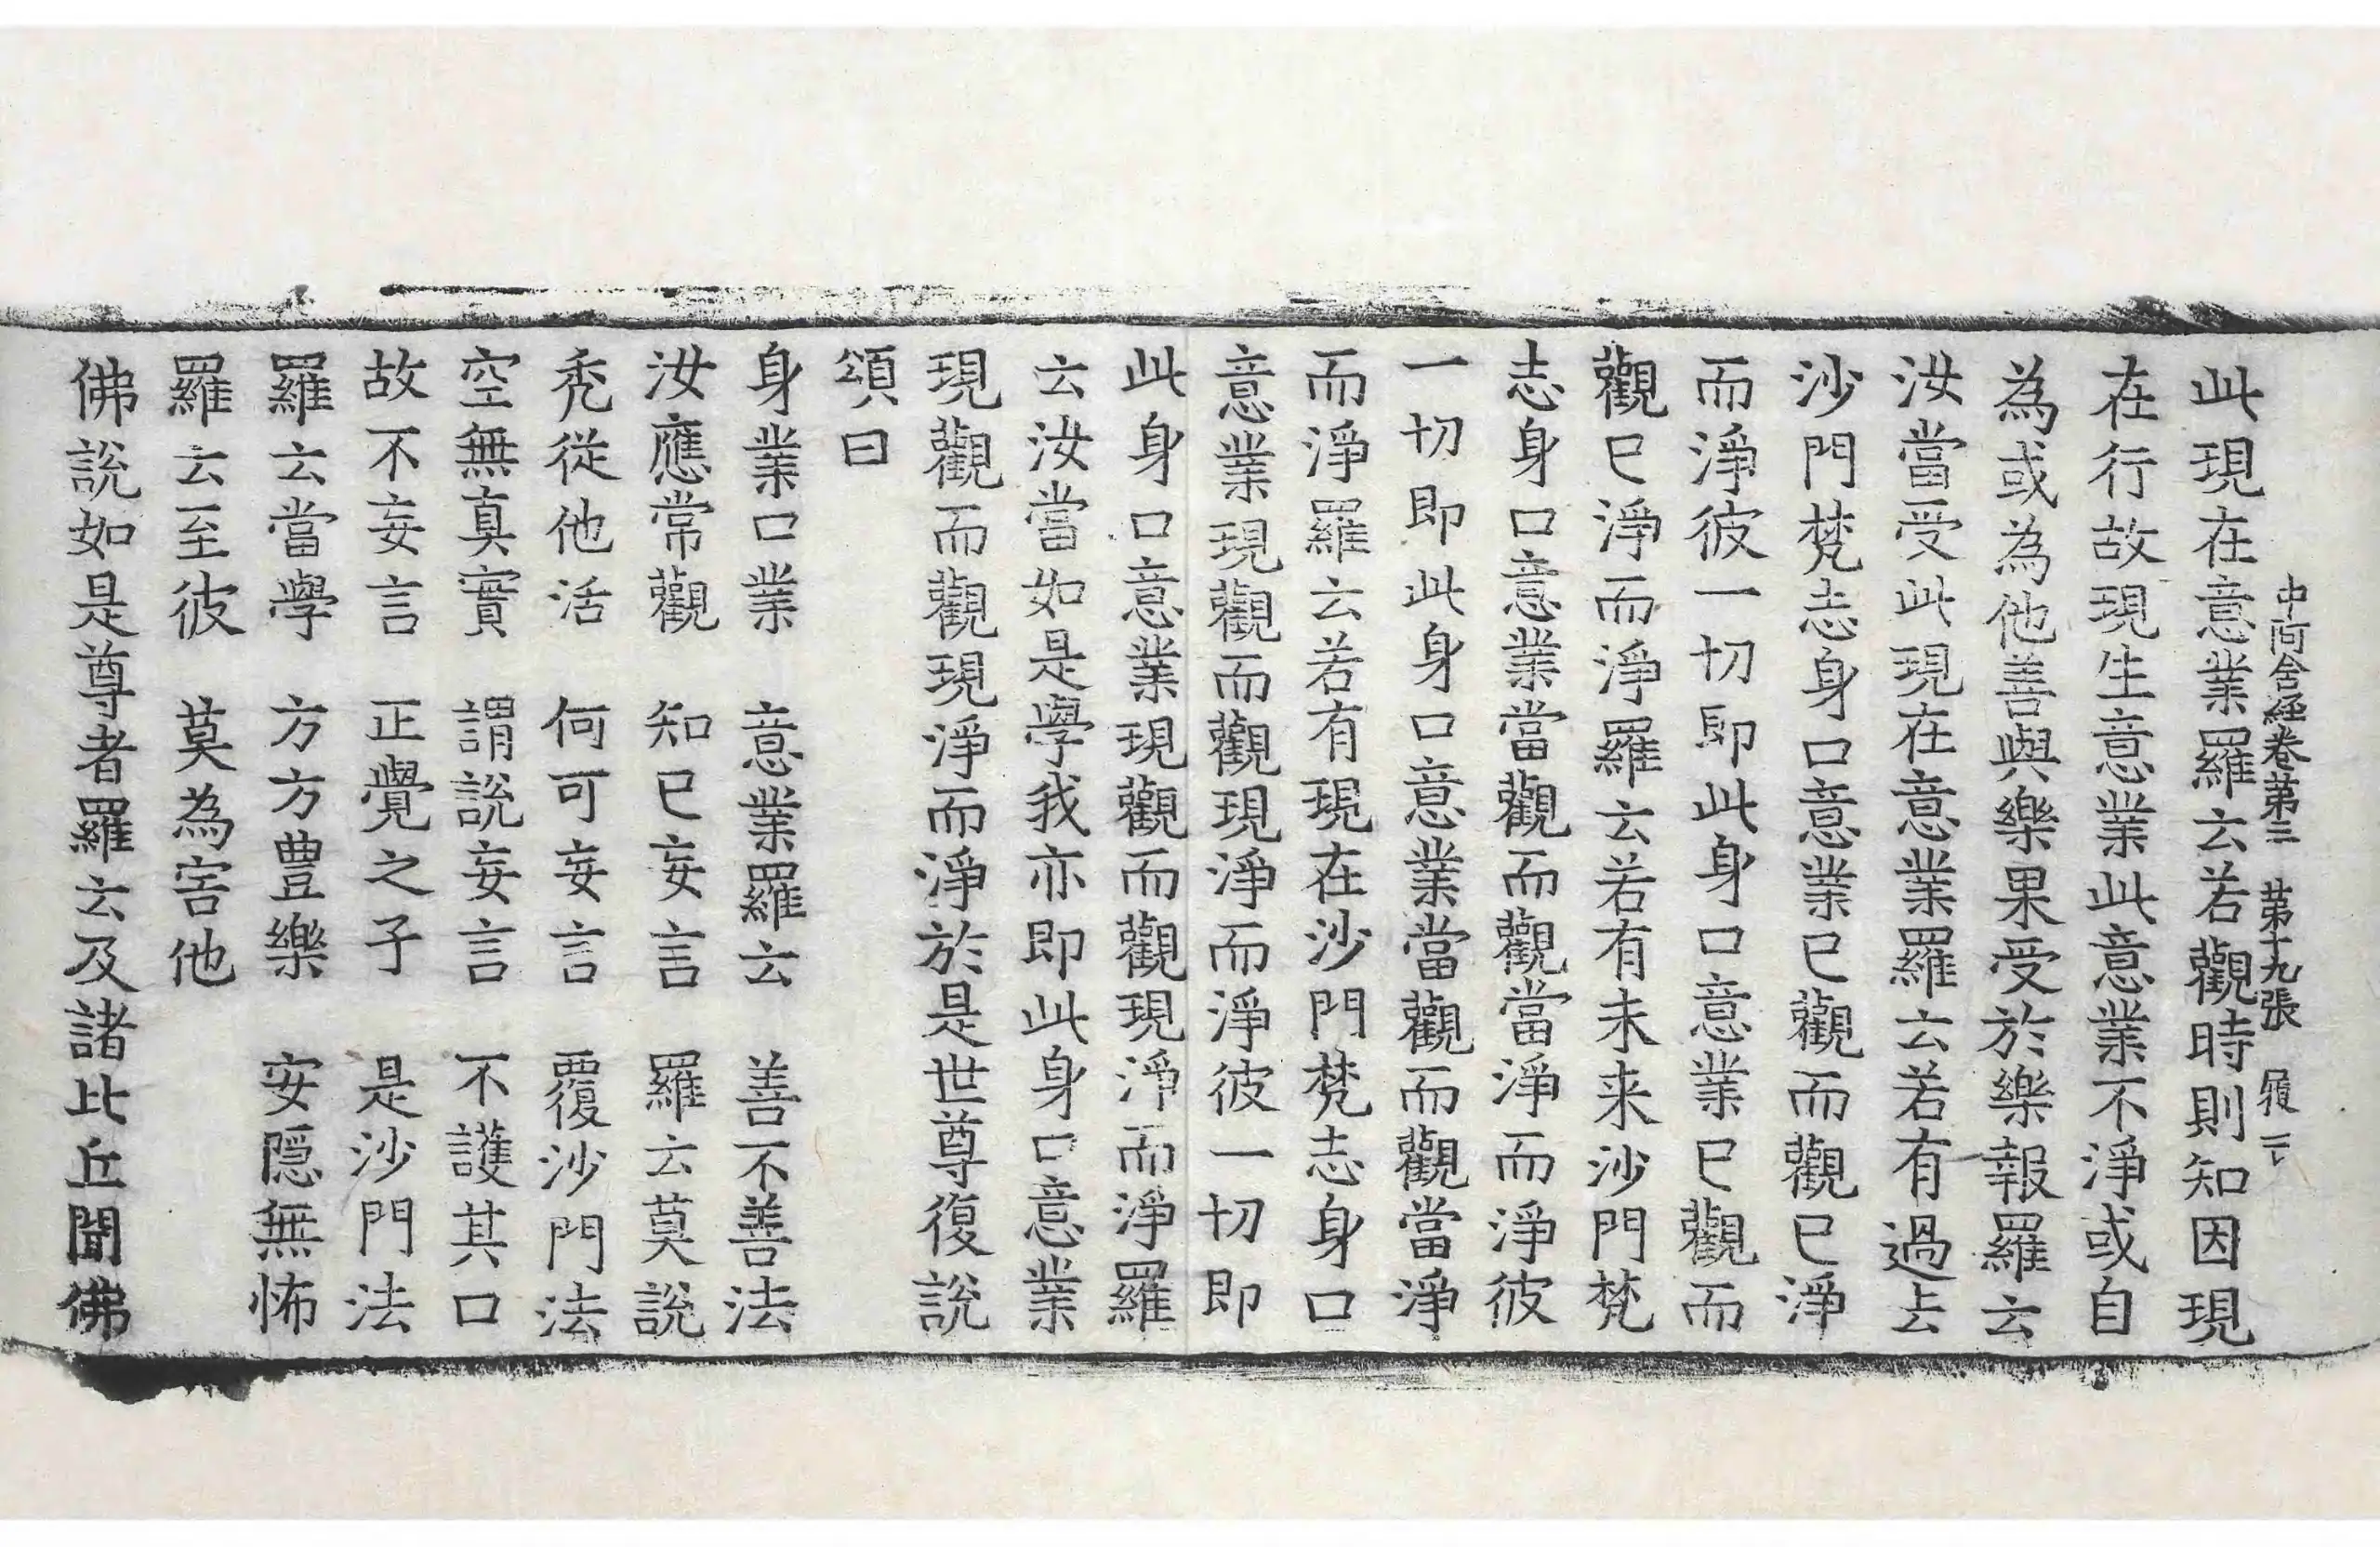 中阿含經卷第三　第十九張　履
此現在意業羅云若觀時則知因現
在行故現生意業此意業不淨或自
為或為他善與樂果受於樂報羅云
汝當受此現在意業羅云若有過去
沙門梵志身口意業已觀而觀已淨
而淨彼一切即此身口意業已觀而
觀已淨而淨羅云若有未来沙門梵
志身口意業當觀而觀當淨而淨彼
一切即此身口意業當觀而觀當淨
而淨羅云若有現在沙門梵志身口
意業現觀而觀現淨而淨彼一切即
此身口意業現觀而觀現淨而淨羅
云汝當如是學我亦即此身口意業
現觀而觀現淨而淨於是世尊復說
頌曰
身業口業　意業羅云　善不善法
汝應常觀　知已妄言　羅云莫說
禿從他活　何可妄言　覆沙門法
空無真實　謂說妄言　不護其口
故不妄言　正覺之子　是沙門法
羅云當學　方方豊樂　安隱無怖
羅云至彼　莫為害他
佛說如是尊者羅云及諸比丘聞佛